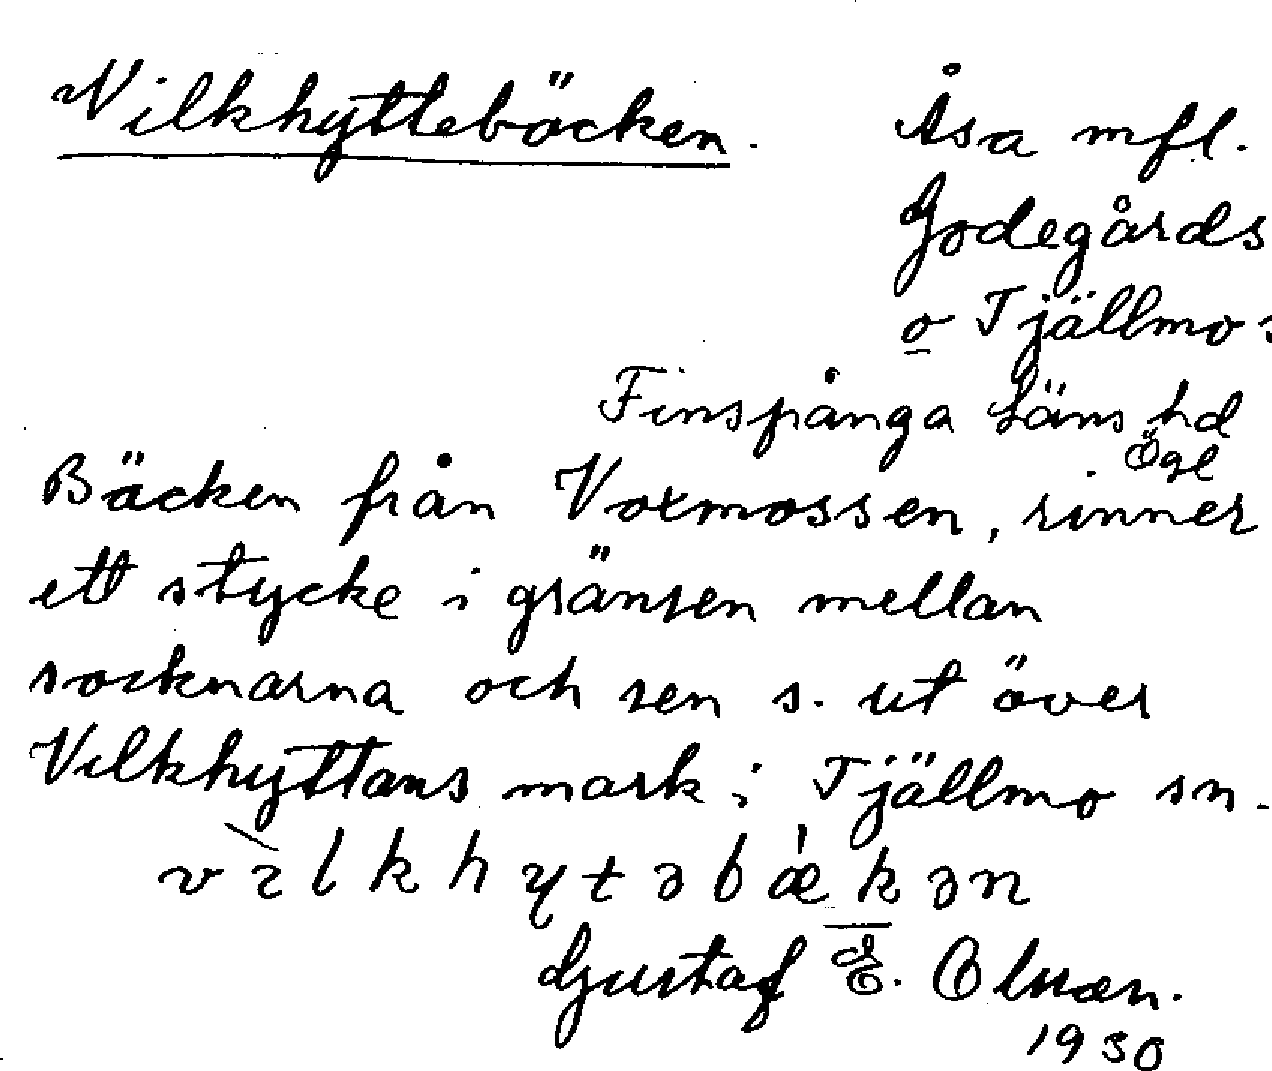 Vilkhyttebäcken.
Åsa mfl.
Godegårds
o Tjällmo s
Finspånga läns hd
Ögl
Bäcken från Voxmossen, rinner
ett stycke i gränsen mellan
socknarna och sen s. ut över
Vilkhyttans mark i Tjällmo sn.
vìlkhytəbǽkən
Gustaf E. Olsson.
1930